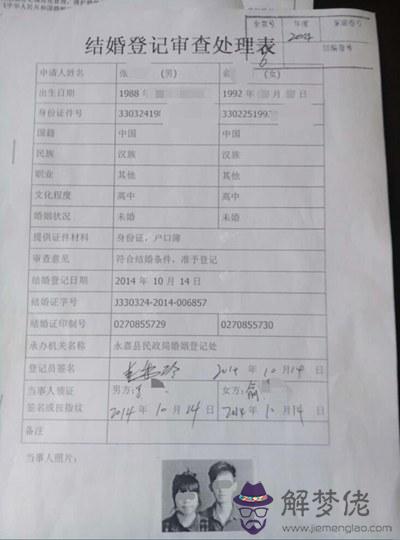 全宗号 年度 案卷号
2014
6
结婚登记审查处理表
申请人姓名 张 (男) (女)
出生日期 1988 年 1992 年 日
身份证件号 33032419 3302251992
国籍 中国 中国
民族 汉族 汉族
职业 其他 其他
文化程度 高中 高中
婚姻状况 未婚 未婚
提供证件材料 身份证，户口簿
审查意见 符合结婚条件，准予登记
结婚登记日期 2014 年 10 月 14 日
结婚证字号 J330324-2014-006857
结婚证印制号 0270855729 0270855730
承办机关名称 永嘉县民政局婚姻登记处
登记员签名 2014 年 10 月 14 日
当事人领证 男方: 女方:
签名或按指纹 2014 年 10 月 14 日 2014 年 10 月 14 日
备注
当事人照片:
解梦佬
www.jiemenglao.com